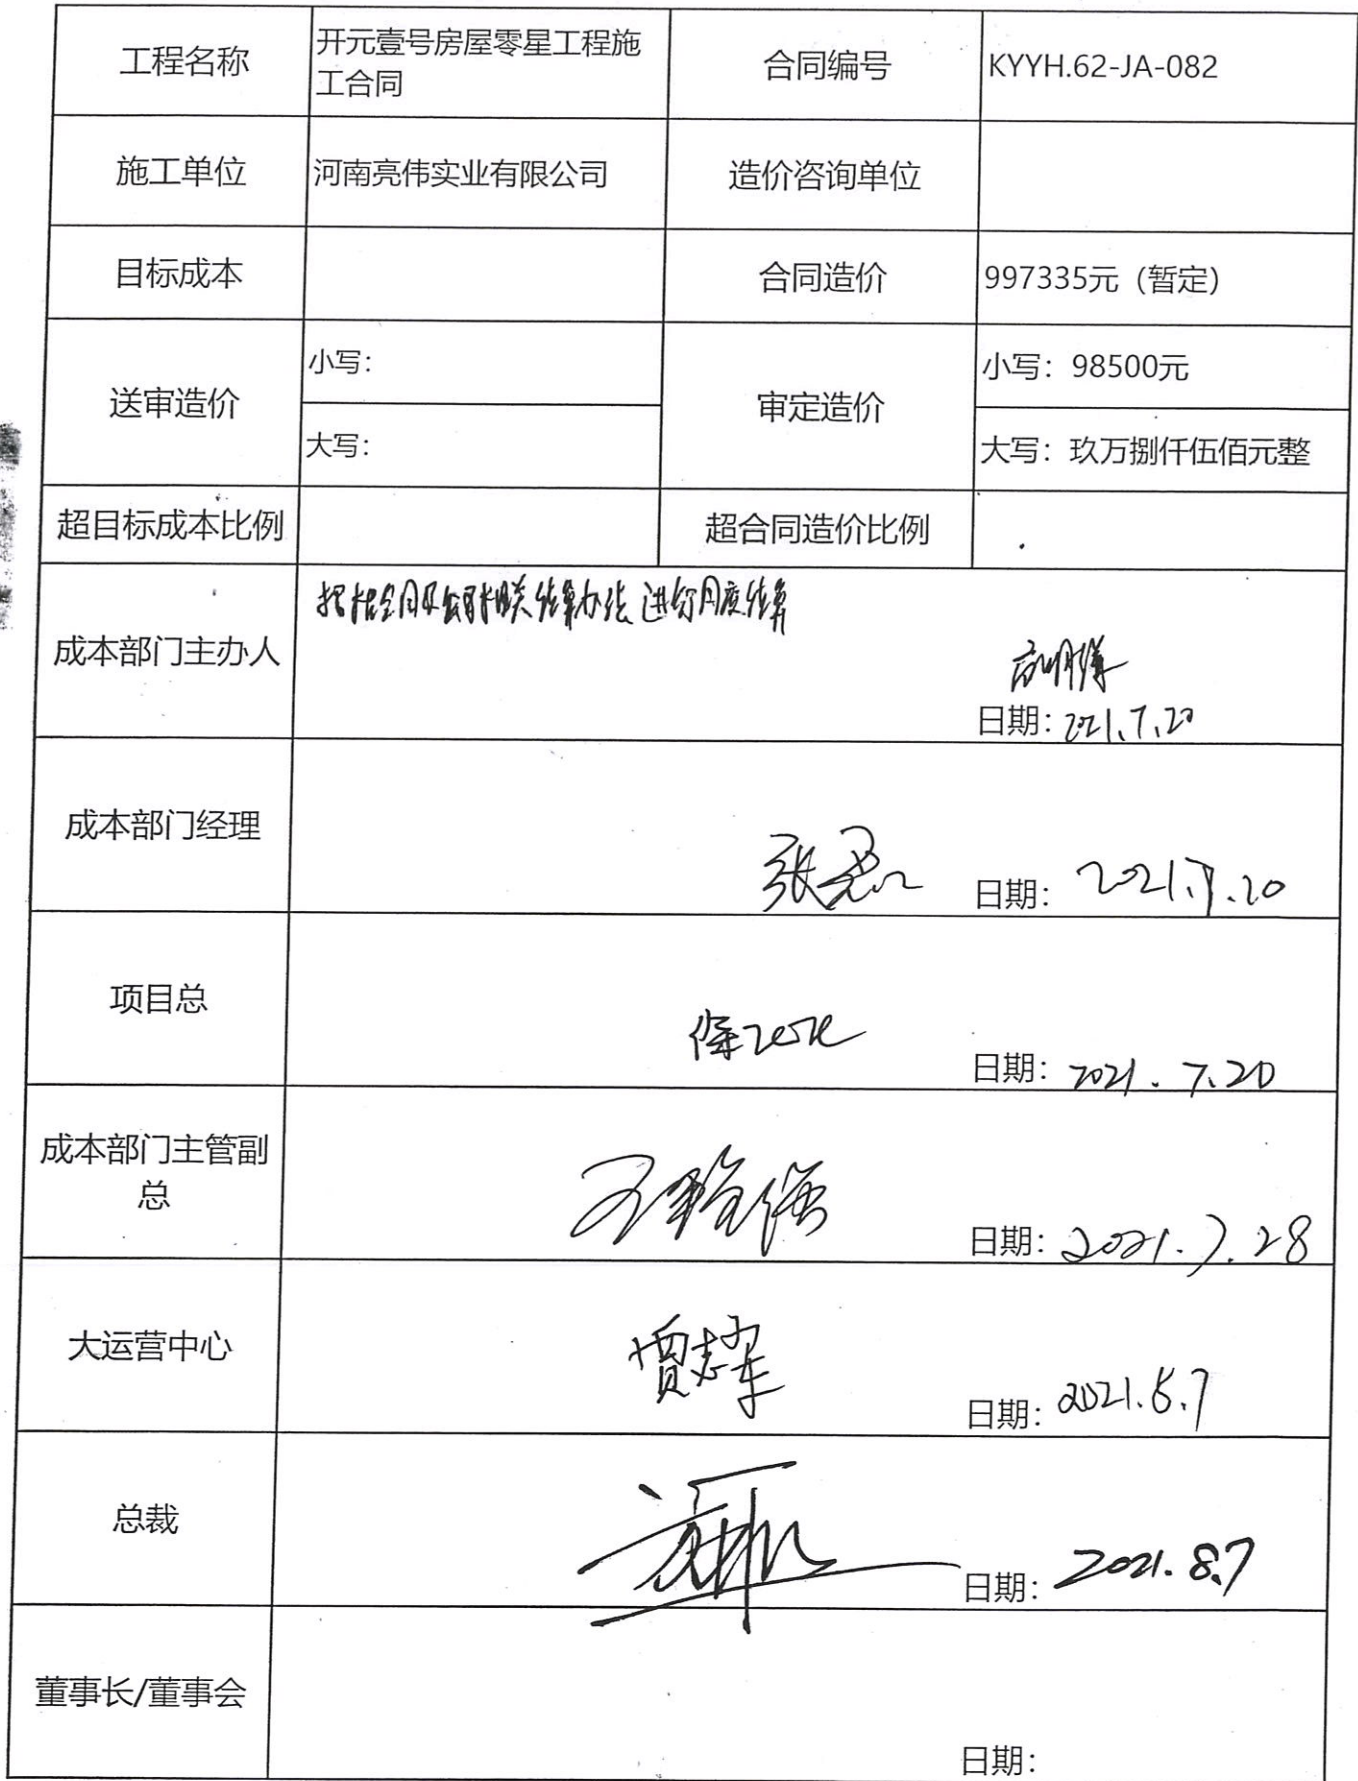 工程名称
开元壹号房屋零星工程施
工合同
合同编号
KYYH.62-JA-082
施工单位
河南亮伟实业有限公司
造价咨询单位
目标成本
合同造价
997335元（暂定）
送审造价
小写：
大写：
审定造价
小写：98500元
大写：玖万捌仟伍佰元整
超目标成本比例
超合同造价比例
成本部门主办人
根据合同及公司相关结算办法进行月度结算
日期：2021.7.20
成本部门经理
日期：2021.7.20
项目总
日期：2021.7.20
成本部门主管副
总
日期：2021.7.28
大运营中心
贾志军
日期：2021.8.7
总裁
日期：2021.8.7
董事长/董事会
日期：